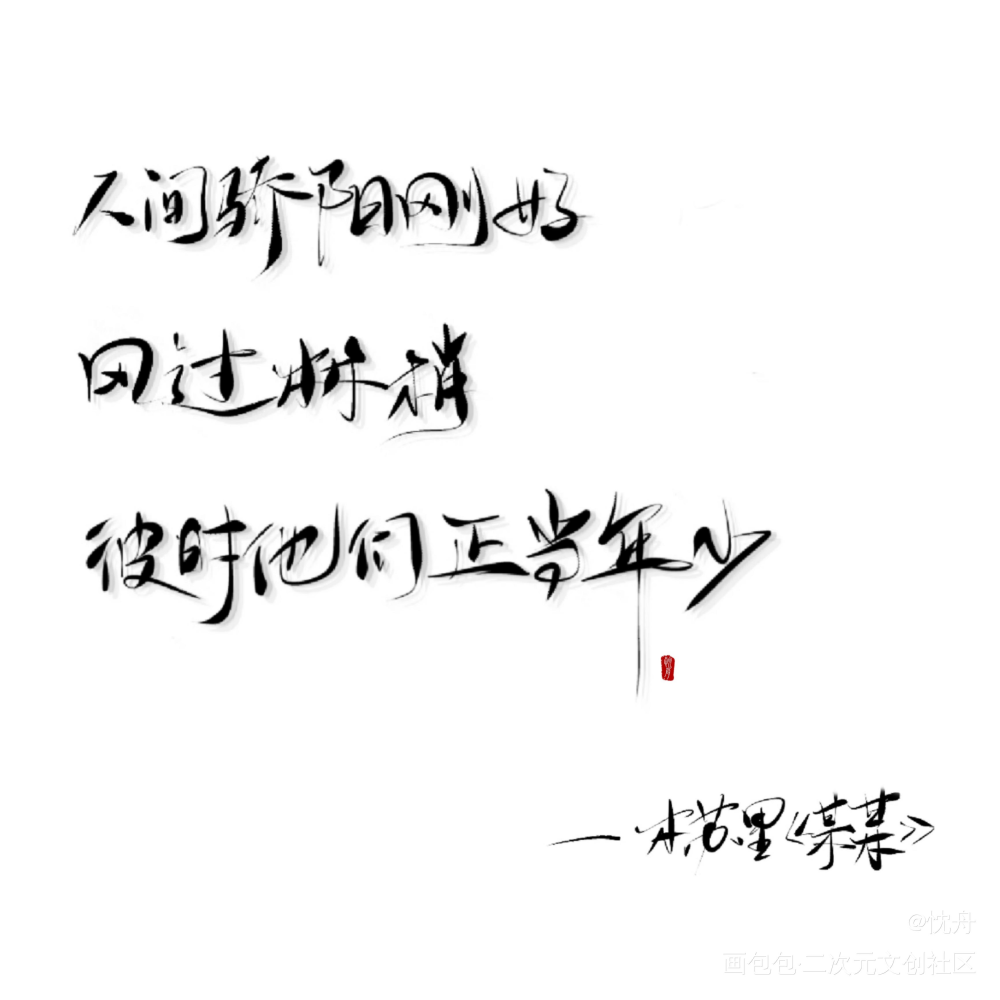 人间骄阳刚好
风过林梢
彼时他们正当年少
—木苏里《某某》
@忱舟
画包包·二次元文创社区